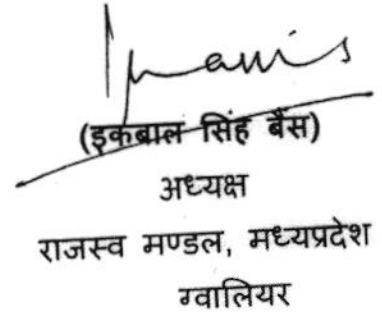 (इकबाल सिंह बैंस)
अध्यक्ष
राजस्व मण्डल, मध्यप्रदेश
ग्वालियर